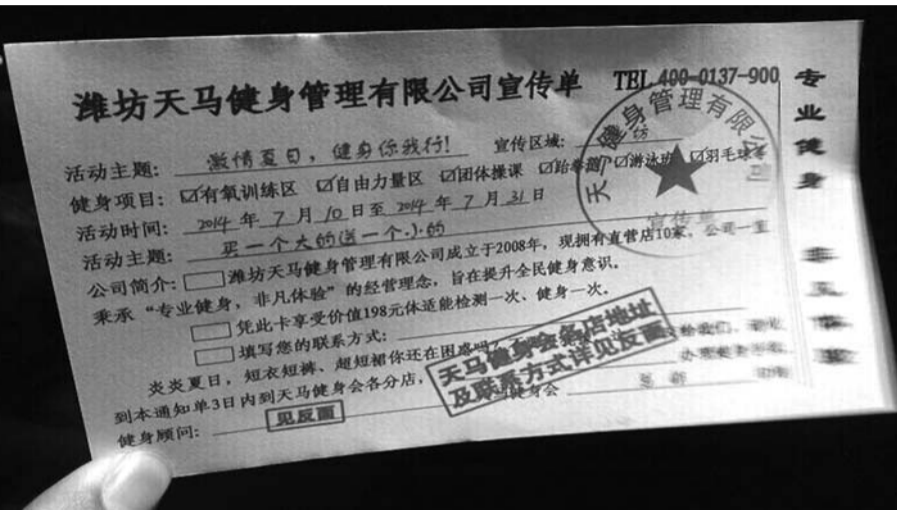 潍坊天马健身管理有限公司宣传单 TEL 400-0137-900
活动主题：激情夏日，健身你我行！ 宣传区域：坊
健身项目：☑有氧训练区 ☑自由力量区 ☑团体操课 ☑跆拳道 ☑游泳班 ☑羽毛球等
活动时间：2014年7月10日至2014年7月31日
活动主题：买一个大的(送一个小的
公司简介：□潍坊天马健身管理有限公司成立于2008年，现拥有直营店10家，公司一直
秉承“专业健身，非凡体验”的经营理念，旨在提升全民健身意识。
□凭此卡享受价值198元体适能检测一次、健身一次。
□填写您的联系方式：
炎炎夏日，短衣短裤、超短裙你还在困惑吗
到本通知单3日内到天马健身会各分店，
健身顾问：见反面 健身会
天马健身会各店地址
及联系方式详见反面
天马健身管理有限公司
宣传单
专业健身 非凡体验